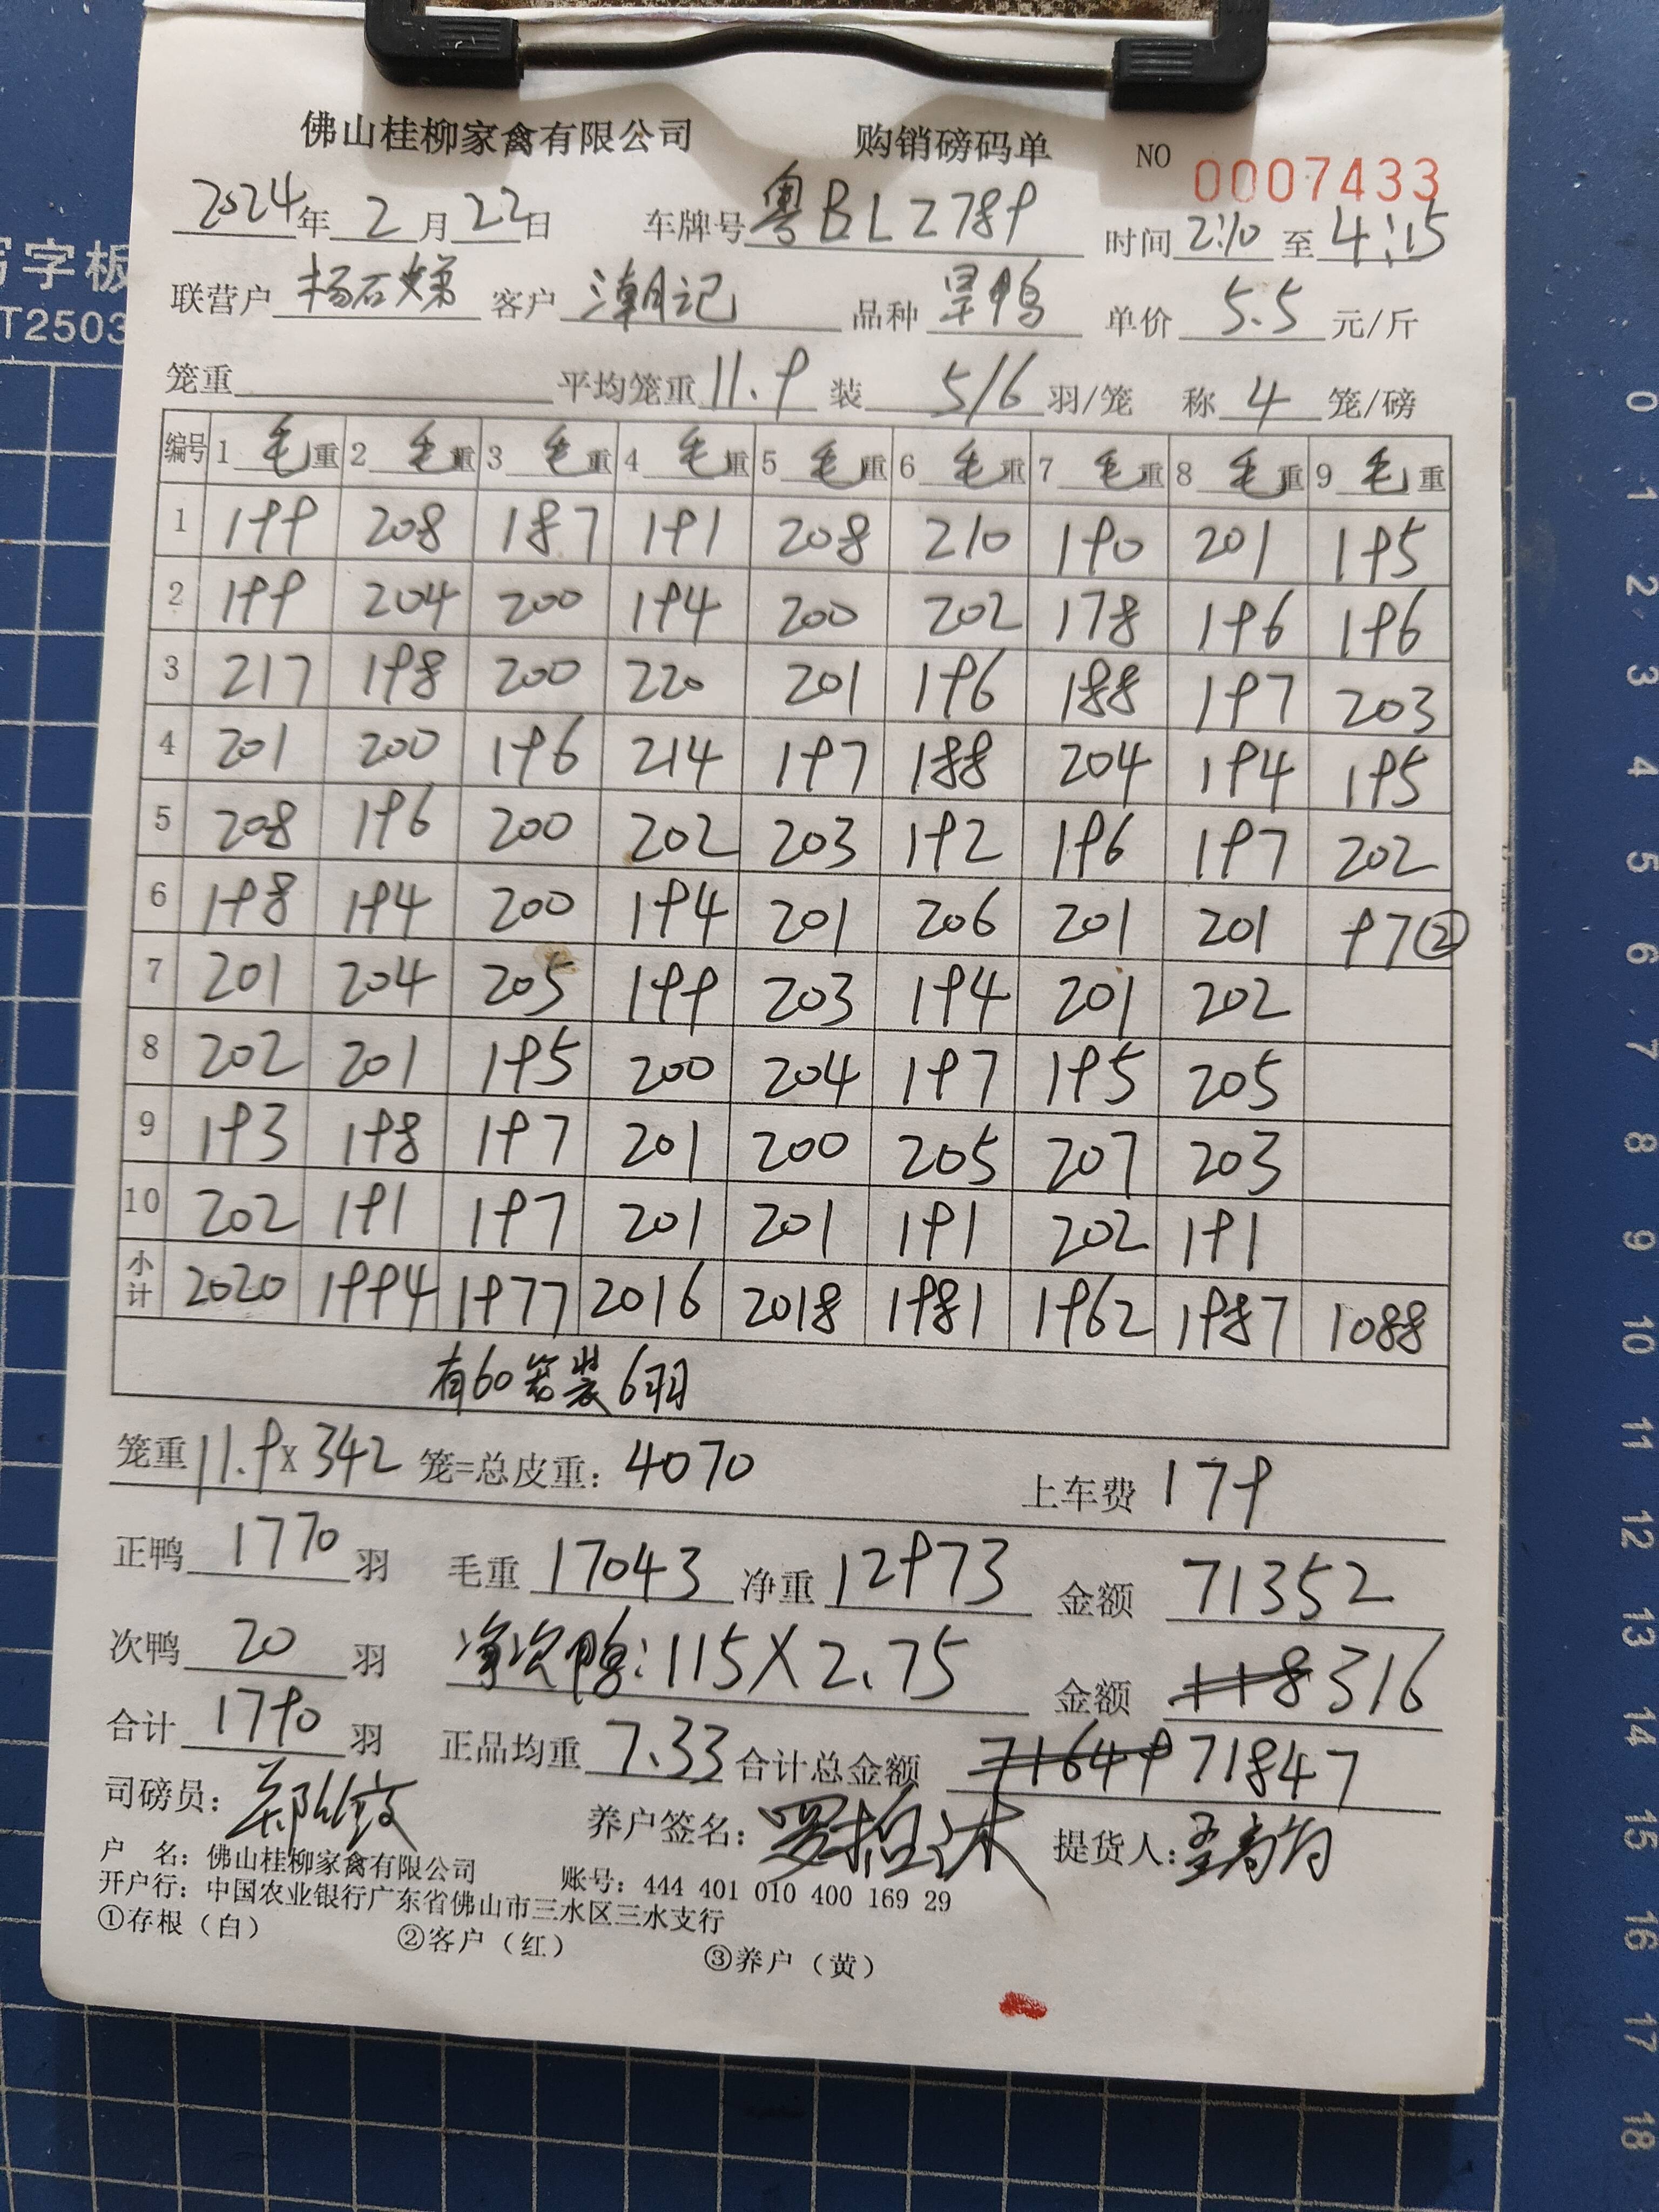 佛山桂柳家禽有限公司 购销磅码单 NO 0007433
2024年2月22日 车牌号粤BLZ789 时间2:10至4:15
联营户杨石娣 客户潮记 品种旱鸭 单价5.5元/斤
笼重 平均笼重11.9装5/6羽/笼 称4笼/磅
编号 1毛重 2毛重 3毛重 4毛重 5毛重 6毛重 7毛重 8毛重 9毛重
1 199 208 187 191 208 210 190 201 195
2 199 204 200 194 200 202 178 196 196
3 217 198 200 220 201 196 188 197 203
4 201 200 196 214 197 188 204 194 195
5 208 196 200 202 203 192 196 197 202
6 198 194 200 194 201 206 201 201 97②
7 201 204 205 199 203 194 201 202
8 202 201 195 200 204 197 195 205
9 193 198 197 201 200 205 207 203
10 202 191 197 201 201 191 202 191
小计 2020 1994 1977 2016 2018 1981 1962 1987 1088
有60笼装6羽
笼重11.9X342笼=总皮重:4070 上车费179
正鸭1770羽 毛重17043净重12973 金额71352
次鸭20羽 净次鸭:115X2.75 金额118 316
合计1790羽 正品均重7.33合计总金额71649 71847
司磅员: 养户签名: 提货人:
户 名:佛山桂柳家禽有限公司 账号:444 401 010 400 169 29
开户行:中国农业银行广东省佛山市三水区三水支行
①存根(白) ②客户(红) ③养户(黄)
写字板
T2503
0
1
2
3
4
5
6
7
8
9
10
11
12
13
14
15
16
17
18